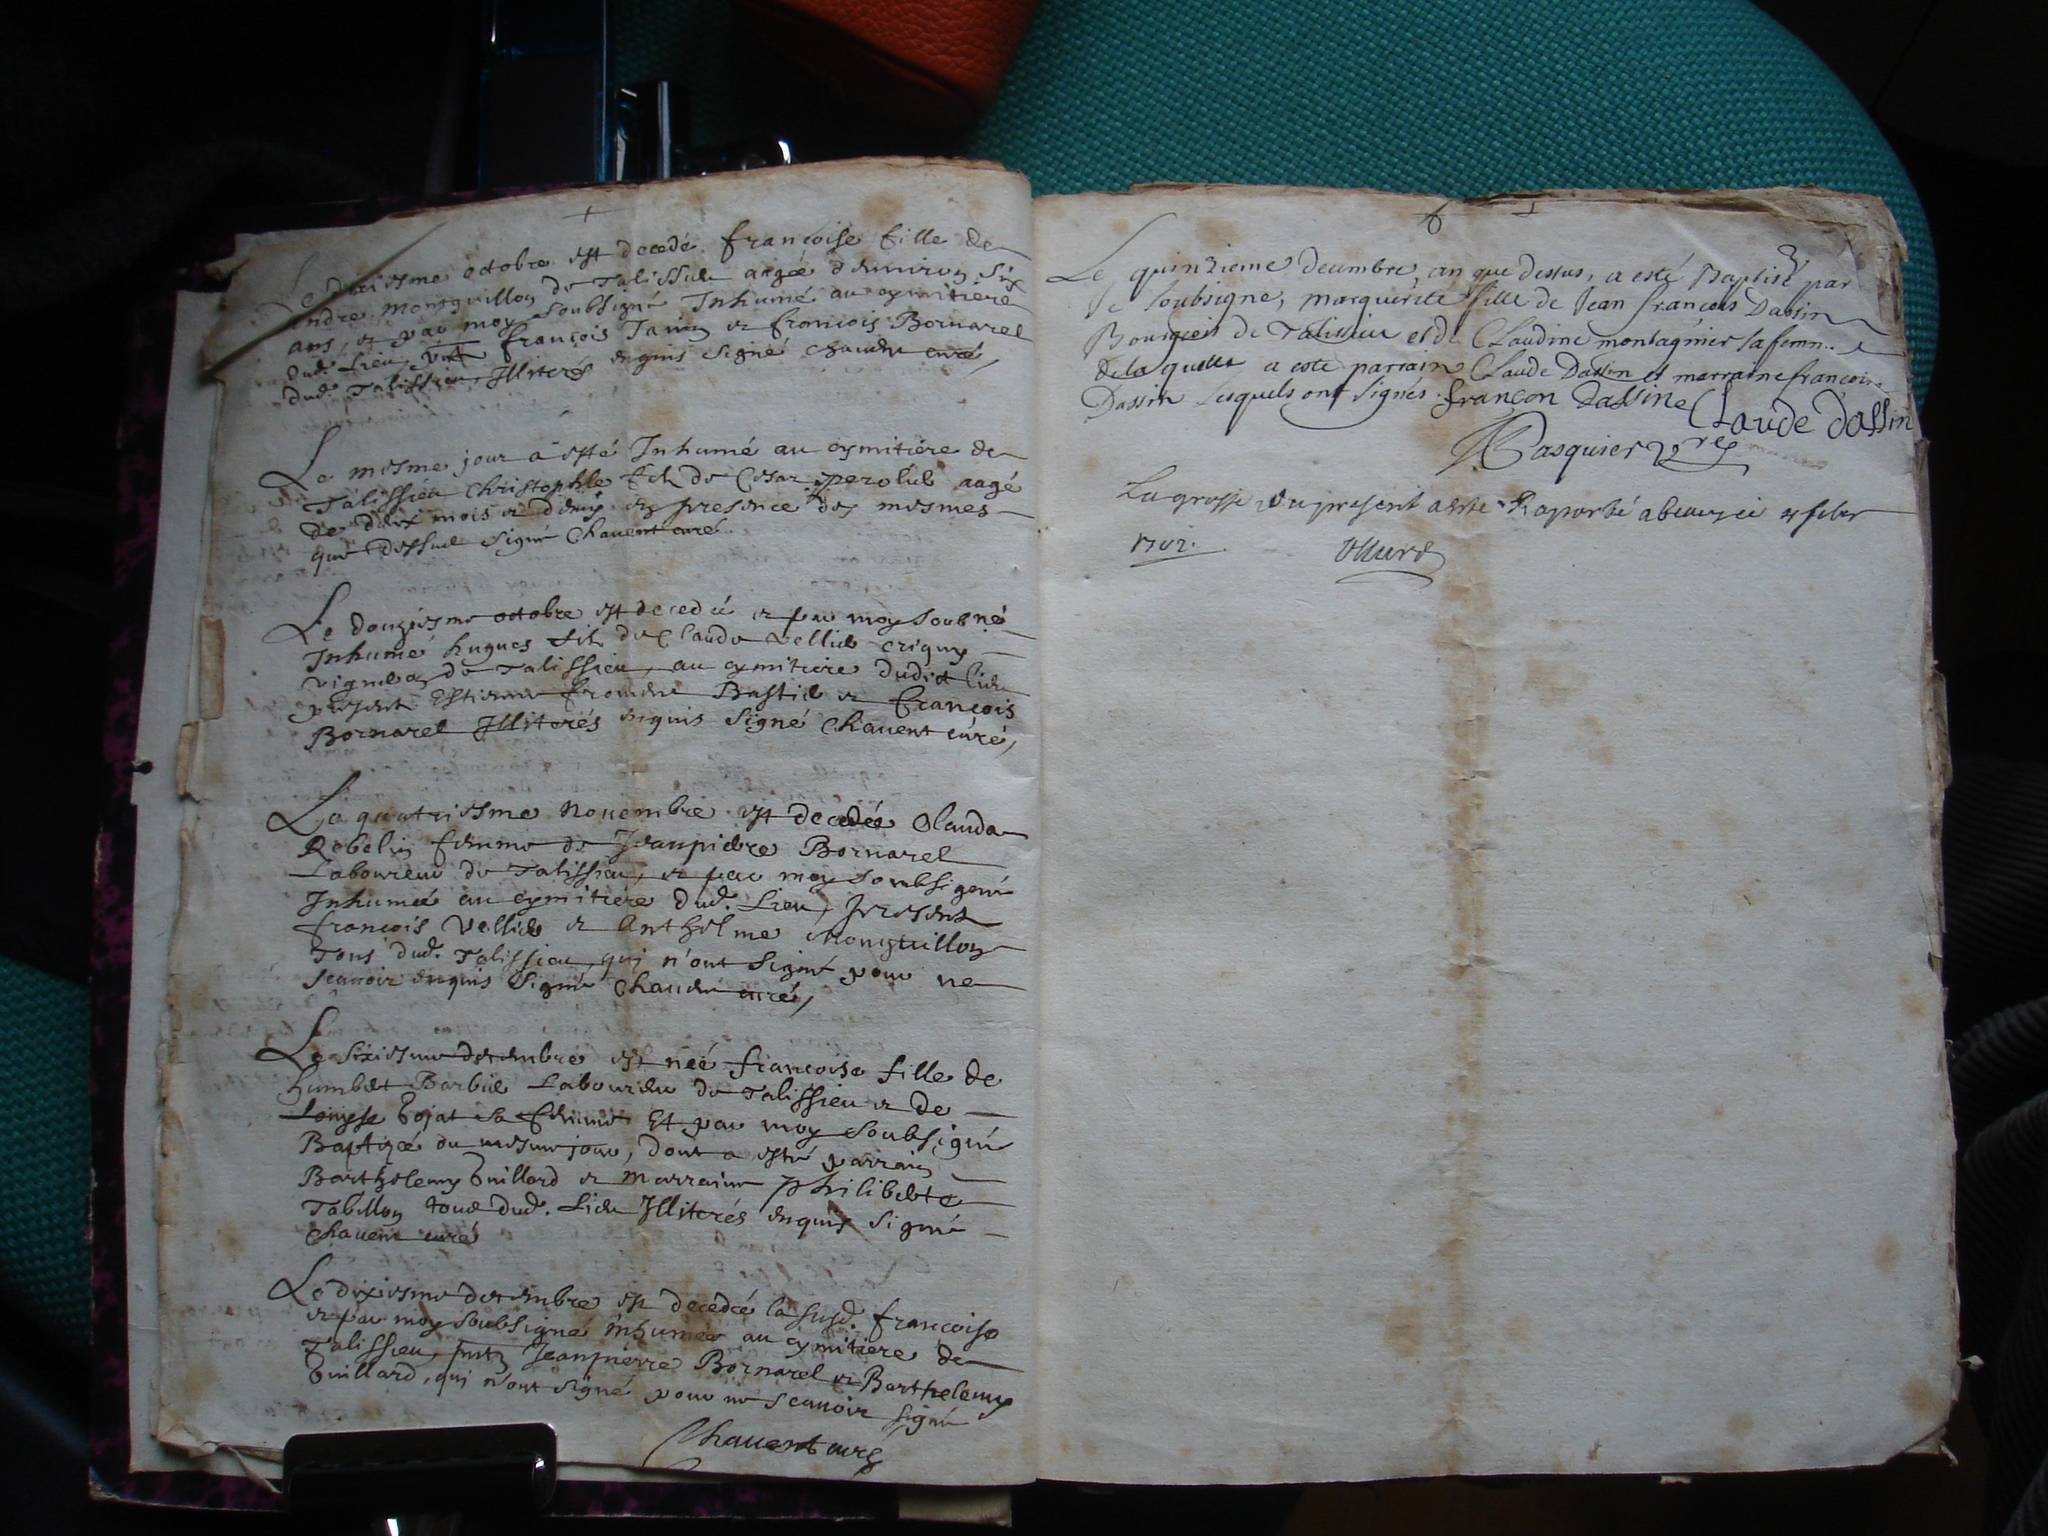 Le dixiesme octobre est decedé francoise fille de
Andre montguillon de Talissieu aagée d'environ six
ans, et par moy soubsigné Inhumé au cymitière
dud. Lieu, françois et francois Bornarel
dud. Talissieu, Illiterés enquis signé Chauent curé,
Le mesme jour a esté Inhumé au cymitière de
Talissieu Christophle fils de Cesar aagé
de deux mois et demy en presence des mesmes
que dessus signé Chauent curé
Le douziesme octobre est decedé et par moy soubné
Inhumé hugues fils de Claude Vellie
vigneron de Talissieu, au cymitiere dudit lieu
present Estienne Bastie et François
Bornarel Illiterés enquis signé Chauent curé,
Le quatriesme Nouembre est decedée Clauda
Robelin femme de Jeanpierre Bornarel
Laboureur de Talissieu, et par moy soubsigné
Inhumée au cymitiere dud. Lieu, present
françois Vellie et Anthelme Monguillon
Tous dud. Talissieu, qui n'ont signé pour ne
scauoir enquis signé Chauent curé,
Le sixiesme decembre est née françoise fille de
humbert Barbie Laboureur de Talissieu et de
Louyse Bojat sa femme Et par moy soubsigné
Baptizée du mesme jour, dont a esté parrain
Barthelemy Guillard et marraine philiberte
Tabillon tous dud. Lieu Illiterés enquis signé
Chauent curé
Le dixiesme decembre est decedée la susd. françoise
et par moy soubsigné inhumée au cymitiere de
Talissieu, pntz Jeanpierre Bornarel et Barthelemy
Guillard, qui n'ont signé pour ne scauoir signé
Chauent curé
Le quinzieme decembre, an que dessus, a esté Baptisé par
le soubsigne, marguerite fille de Jean françois Dassin
Bourgeois de Talissieu et de Claudine montagnier sa femme
de laquelle a esté parrain Claude Dassin et marraine francoise
Dassin lesquels ont signés. françon dassine Claude dassin
Pasquier
La grosse du present a esté Raporté a 4 feber
1702.